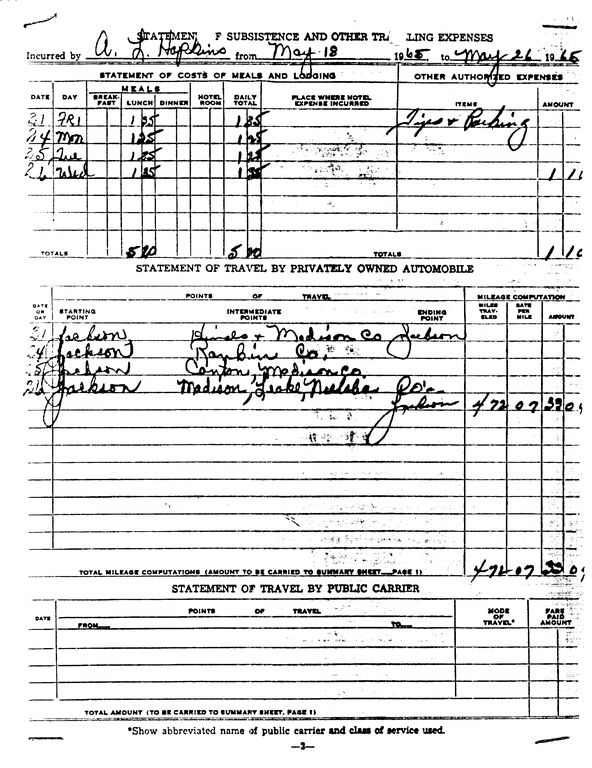 STATEMEN F SUBSISTENCE AND OTHER TRA LING EXPENSES
Incurred by A. L. Hopkins from May 18 1965 to May 26 1965
STATEMENT OF COSTS OF MEALS AND LODGING OTHER AUTHORIZED EXPENSES
MEALS
DATE DAY BREAK-FAST LUNCH DINNER HOTEL ROOM DAILY TOTAL PLACE WHERE HOTEL EXPENSE INCURRED ITEMS AMOUNT
21 FRI 1 25 1 25 Tips & Parking
24 Mon 1 25 1 25
25 Tue 1 25 1 25
26 Wed 1 25 1 25 1 10
TOTALS 5 00 5 00 TOTALS 1 10
STATEMENT OF TRAVEL BY PRIVATELY OWNED AUTOMOBILE
POINTS OF TRAVEL MILEAGE COMPUTATION
DATE OR DAY STARTING POINT INTERMEDIATE POINTS ENDING POINT MILES TRAV-ELED RATE PER MILE AMOUNT
21 Jackson Hinds & Madison Co Jackson
24 Jackson Rankin Co.
25 Jackson Canton, Madison Co.
26 Jackson Madison, Leake, Neshoba Co's.
Jackson 472 07 33 0
TOTAL MILEAGE COMPUTATIONS (AMOUNT TO BE CARRIED TO SUMMARY SHEET, PAGE 1) 472 07 33 0
STATEMENT OF TRAVEL BY PUBLIC CARRIER
POINTS OF TRAVEL
DATE FROM TO MODE OF TRAVEL* FARE PAID AMOUNT
TOTAL AMOUNT (TO BE CARRIED TO SUMMARY SHEET, PAGE 1)
*Show abbreviated name of public carrier and class of service used.
—2—